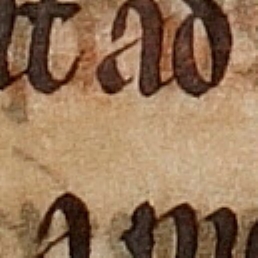 lt ad
am